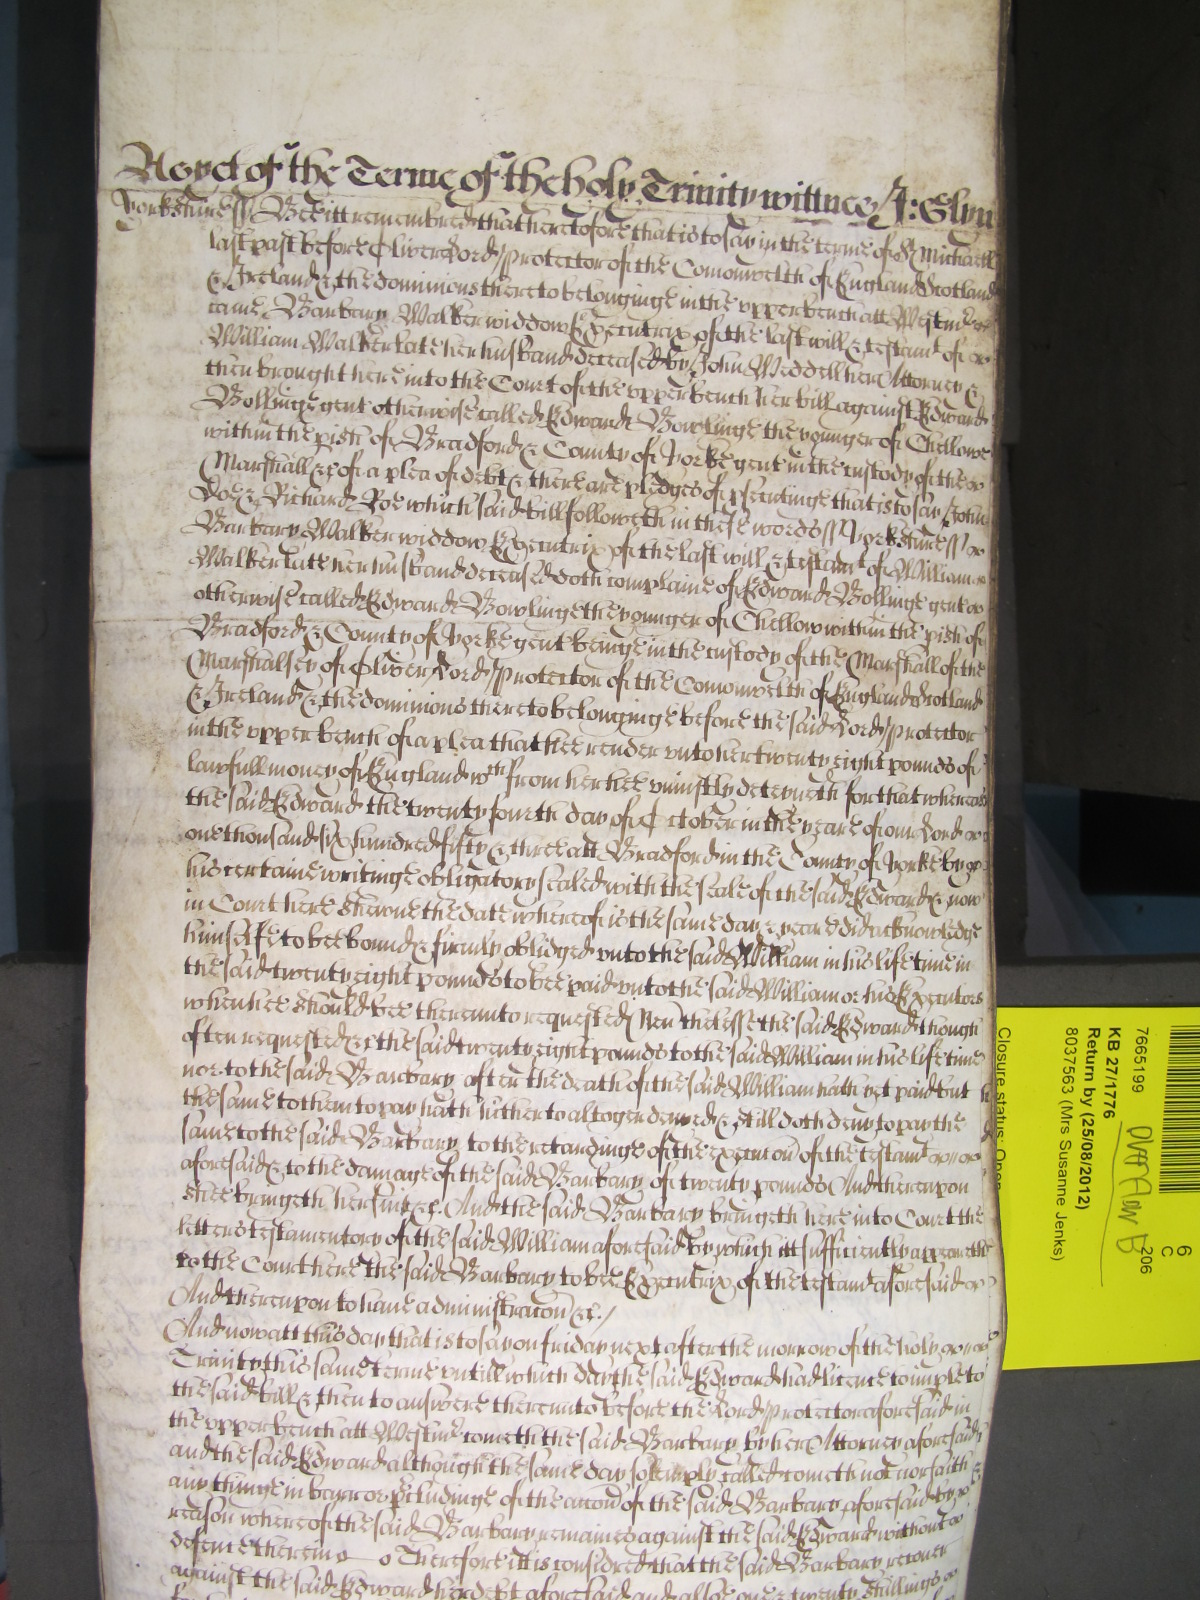 Yet of the Terme of the holy Trinity wittnes J: Glyn
Yorkshire ss Bee itt remembred that heretofore that is to say in the terme of St Michaell
last past before Oliver Lord Protector of the Comonwelth of England Scotland
& Ireland & the dominions thereto belonginge in the vpper bench att Westmr
came Barbary Walker widdow Executrix of the last will & testamt of
William Walker late her husband deceased by John Weddell her Attorney &
then brought here into the Court of the vpper bench her bill against Edward
Bollinge gent otherwise called Edward Bowlinge the younger of Chellowe
within the pish of Bradford & County of Yorke gent in the custody of the
Marshall &c of a plea of debt & there are pledges of psecutinge that is to say John
Doe & Richard Roe which said bill followeth in these words ss Yorkshire ss
Barbary Walker widdow Executrix of the last will & testamt of William
Walker late her husband deceased doth complaine of Edward Bollinge gent
otherwise called Edward Bowlinge the younger of Chellow within the pish of
Bradford & County of Yorke gent beinge in the custody of the Marshall of the
Marshalsey of Oliver Lord Protector of the Comonwelth of England Scotland
& Ireland & the dominions thereto belonginge before the said Lord Protector
in the vpper bench of a plea that hee render vnto her twenty eight pounds of
lawfull money of England wch from her hee vniustly deteyneth for that whereas
the said Edward the twenty fourth day of October in the yeare of our Lord
one thousand six hundred fifty & three att Bradford in the County of Yorke by
his certaine writinge obligatory sealed with the seale of the said Edward & now
in Court here shewne the date whereof is the same day & yeare did acknowledge
himselfe to bee bound & firmly obliged vnto the said William in his life time in
the said twenty eight pounds to bee paid vnto the said William or his Executors
when hee should bee therevnto requested Neverthelesse the said Edward though
often requested &c the said twenty eight pounds to the said William in his life time
nor to the said Barbary after the death of the said William hath yet paid but
the same to them to pay hath hitherto altogether denyed & still doth deny to pay the
same to the said Barbary to the retardinge of the execucon of the testamt
aforesaid & to the damage of the said Barbary of twenty pounds And therevpon
shee bringeth her suite &c. And the said Barbary bringeth here into Court the
letters testamentory of the said William aforesaid by which itt sufficiently appeareth
to the Court here the said Barbary to bee Executrix of the testamt aforesaid
And therevpon to have administracon &c./
And now att this day that is to say on friday next after the morrow of the holy
Trinity this same terme vntill which day the said Edward had licence to imple to
the said bill & then to answere therevnto before the Lord Protector aforesaid in
the vpper bench att Westmr cometh the said Barbary by her Attorney aforesaid
and the said Edward although the same day solemply called cometh not nor saith
any thinge in barre or pcludinge of the accon of the said Barbary aforesaid by
reason whereof the said Barbary remaines against the said Edward without
defence therein Therefore itt is considred that the said Barbary recover
against the said Edward her debt aforesaid and allsoe twenty shillings
7665199
KB 27/1776
Return by (25/08/2012)
8037563 (Mrs Susanne Jenks)
Closure status: Open
6
C
206